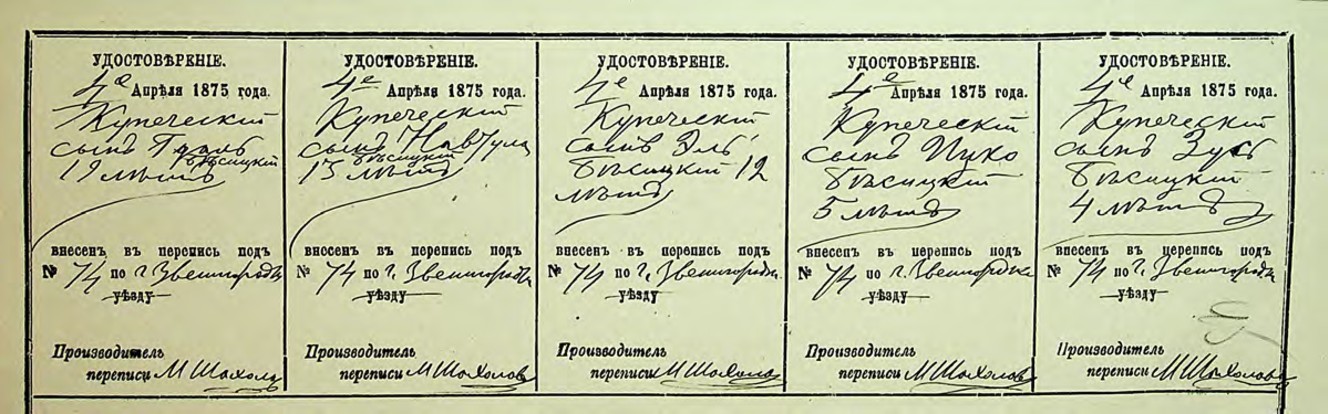 УДОСТОВѢРЕНІЕ.
4е Апрѣля 1875 года.
Купеческій
сынъ
Бѣсицкій
19 лѣтъ
внесенъ въ перепись подъ
№ 74 по г. Звенигородкѣ
уѣзду
Производитель
переписи М Шахолов
УДОСТОВѢРЕНІЕ.
4е Апрѣля 1875 года.
Купеческій
сынъ Навтула
Бѣсицкій
15 лѣтъ
вносенъ въ перепись подъ
№ 74 по г. Звенигородкѣ
уѣзду
Производитель
переписи М Шахолов
УДОСТОВѢРЕНІЕ.
4е Апрѣля 1875 года.
Купеческій
сынъ Эль
Бѣсицкій 12
лѣтъ
внесенъ въ перепись подъ
№ 74 по г. Звенигородкѣ
уѣзду
Производитель
переписи М Шахолов
УДОСТОВѢРЕНІЕ.
4е Апрѣля 1875 года.
Купеческій
сынъ Ицко
Бѣсицкій
5 лѣтъ
внесенъ въ перепись подъ
№ 74 по г. Звенигородкѣ
уѣзду
Производитель
переписи М Шахолов
УДОСТОВѢРЕНІЕ.
4е Апрѣля 1875 года.
Купеческій
сынъ Зусь
Бѣсицкій
4 лѣтъ
внесенъ въ перепись подъ
№ 74 по г. Звенигородкѣ
уѣзду
Производитель
переписи М Шахолов